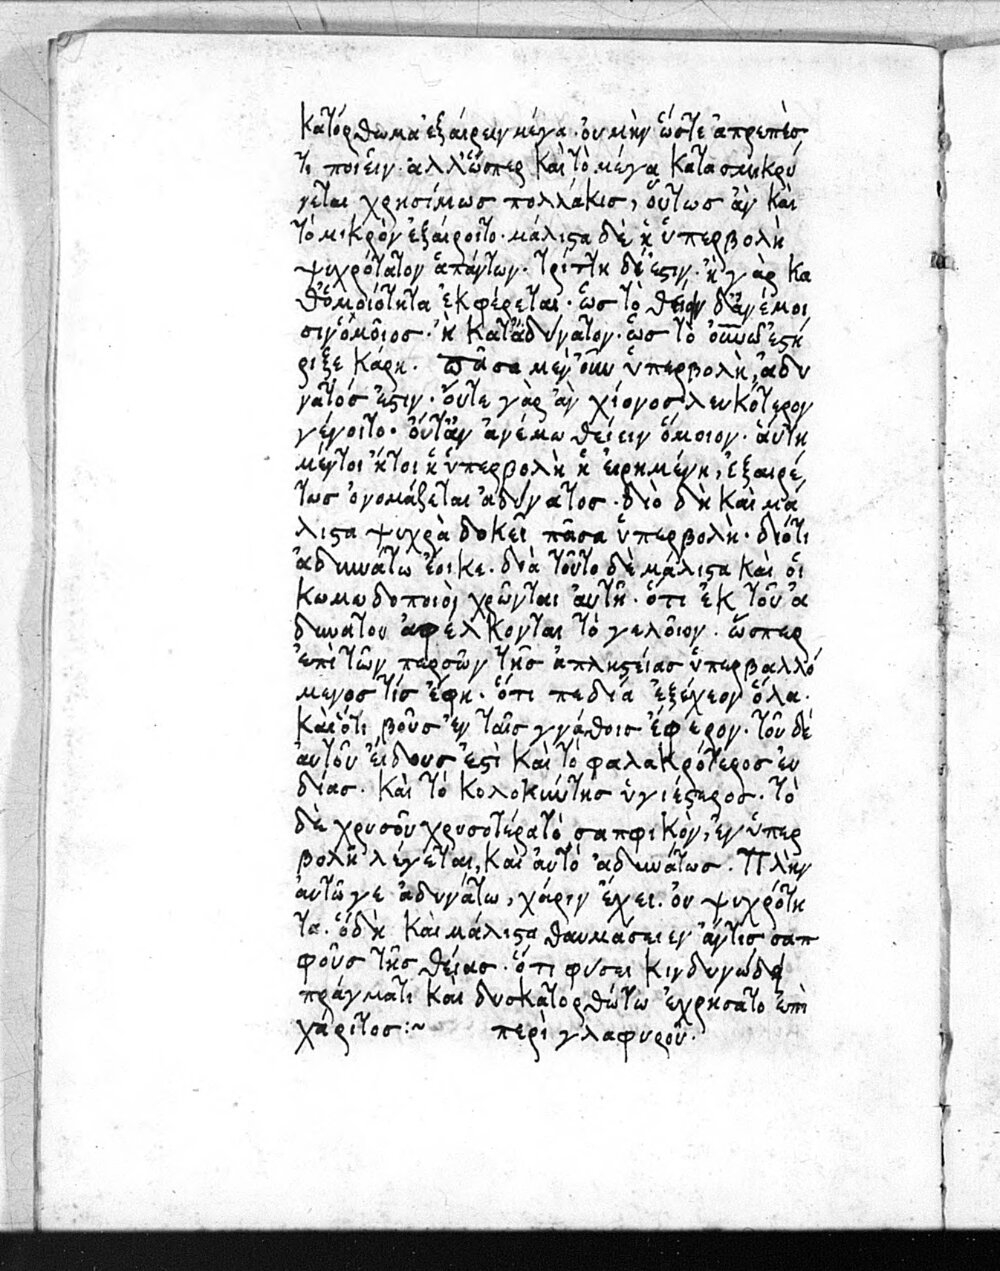 κατόρθωμα ἐξαίρειν μέγα· οὐ μὴν ὥστε ἀπρεπές
τι ποιεῖν· ἀλλ' ὥσπερ καὶ τὸ μέγα κατασμικρύ
νεται χρησίμως πολλάκις, οὕτως ἂν καὶ
τὸ μικρὸν ἐξαίροιτο· μάλιστα δὲ ἡ ὑπερβολὴ
ψυχρότατον ἁπάντων· τρίττη δέ ἐστιν· ἢ γὰρ κα
θ' ὁμοιότητα ἐκφέρεται· ὡς τὸ θείειν δ' ἀνέμοι
σιν ὁμοῖος· ἢ κατ' ἀδύνατον· ὡς τὸ οὐνῶ ἐστή
ριξε κάρη. πᾶσα μὲν οὖν ὑπερβολὴ, ἀδύ
νατός ἐστιν· οὔτε γὰρ ἂν χίονος λευκότερον
γένοιτο· οὔτ' ἂν ἀνέμω θείειν ὅμοιον· αὕτη
μέντοι ἤτοι ἡ ὑπερβολὴ ἡ εἰρημένη, ἐξαιρέ
τως ὀνομάζεται ἀδύνατος· διὸ δὴ καὶ μά
λιστα ψυχρὰ δοκεῖ πᾶσα ὑπερβολὴ· διότι
ἀδυνάτω ἔοικε· διὰ τοῦτο δὲ μάλιστα καὶ οἱ
κωμωδοποιοὶ χρῶνται αὐτῆ· ὅτι ἐκ τοῦ ἀ
δυνάτου ἀφέλκονται τὸ γελοῖον· ὥσπερ
ἐπὶ τῶν περσῶν τῆς ἀπληστείας ὑπερβαλλό
μενος τὶς ἔφη· ὅτι πεδία ἐξέχεον ὅλα·
καὶ ὅτι βοῦς ἐν ταῖς γνάθοις ἔφερον· τοῦ δὲ
αὐτοῦ εἴδους ἐστὶ καὶ τὸ φαλακρότερος εὐ
δίας· καὶ τὸ κολοκύντης ὑγιέστερος· τὸ
δὲ χρυσοῦ χρυσοτέρα τὸ σαπφικὸν, ἐν ὑπερ
βολῆ λέγεται, καὶ αὐτὸ ἀδυνάτως· Πλὴν
αὐτῶ γε ἀδυνάτω, χάριν ἔχει· οὐ ψυχρότη
τα· ὃ δὴ καὶ μάλιστα θαυμάσειεν ἄν τις σαπ
φοῦς τῆς θείας· ὅτι φύσει κινδυνώδει
πράγματι καὶ δυσκατορθώτω ἐχρήσατο ἐπι
χαρίτως:~ περὶ γλαφυροῦ·